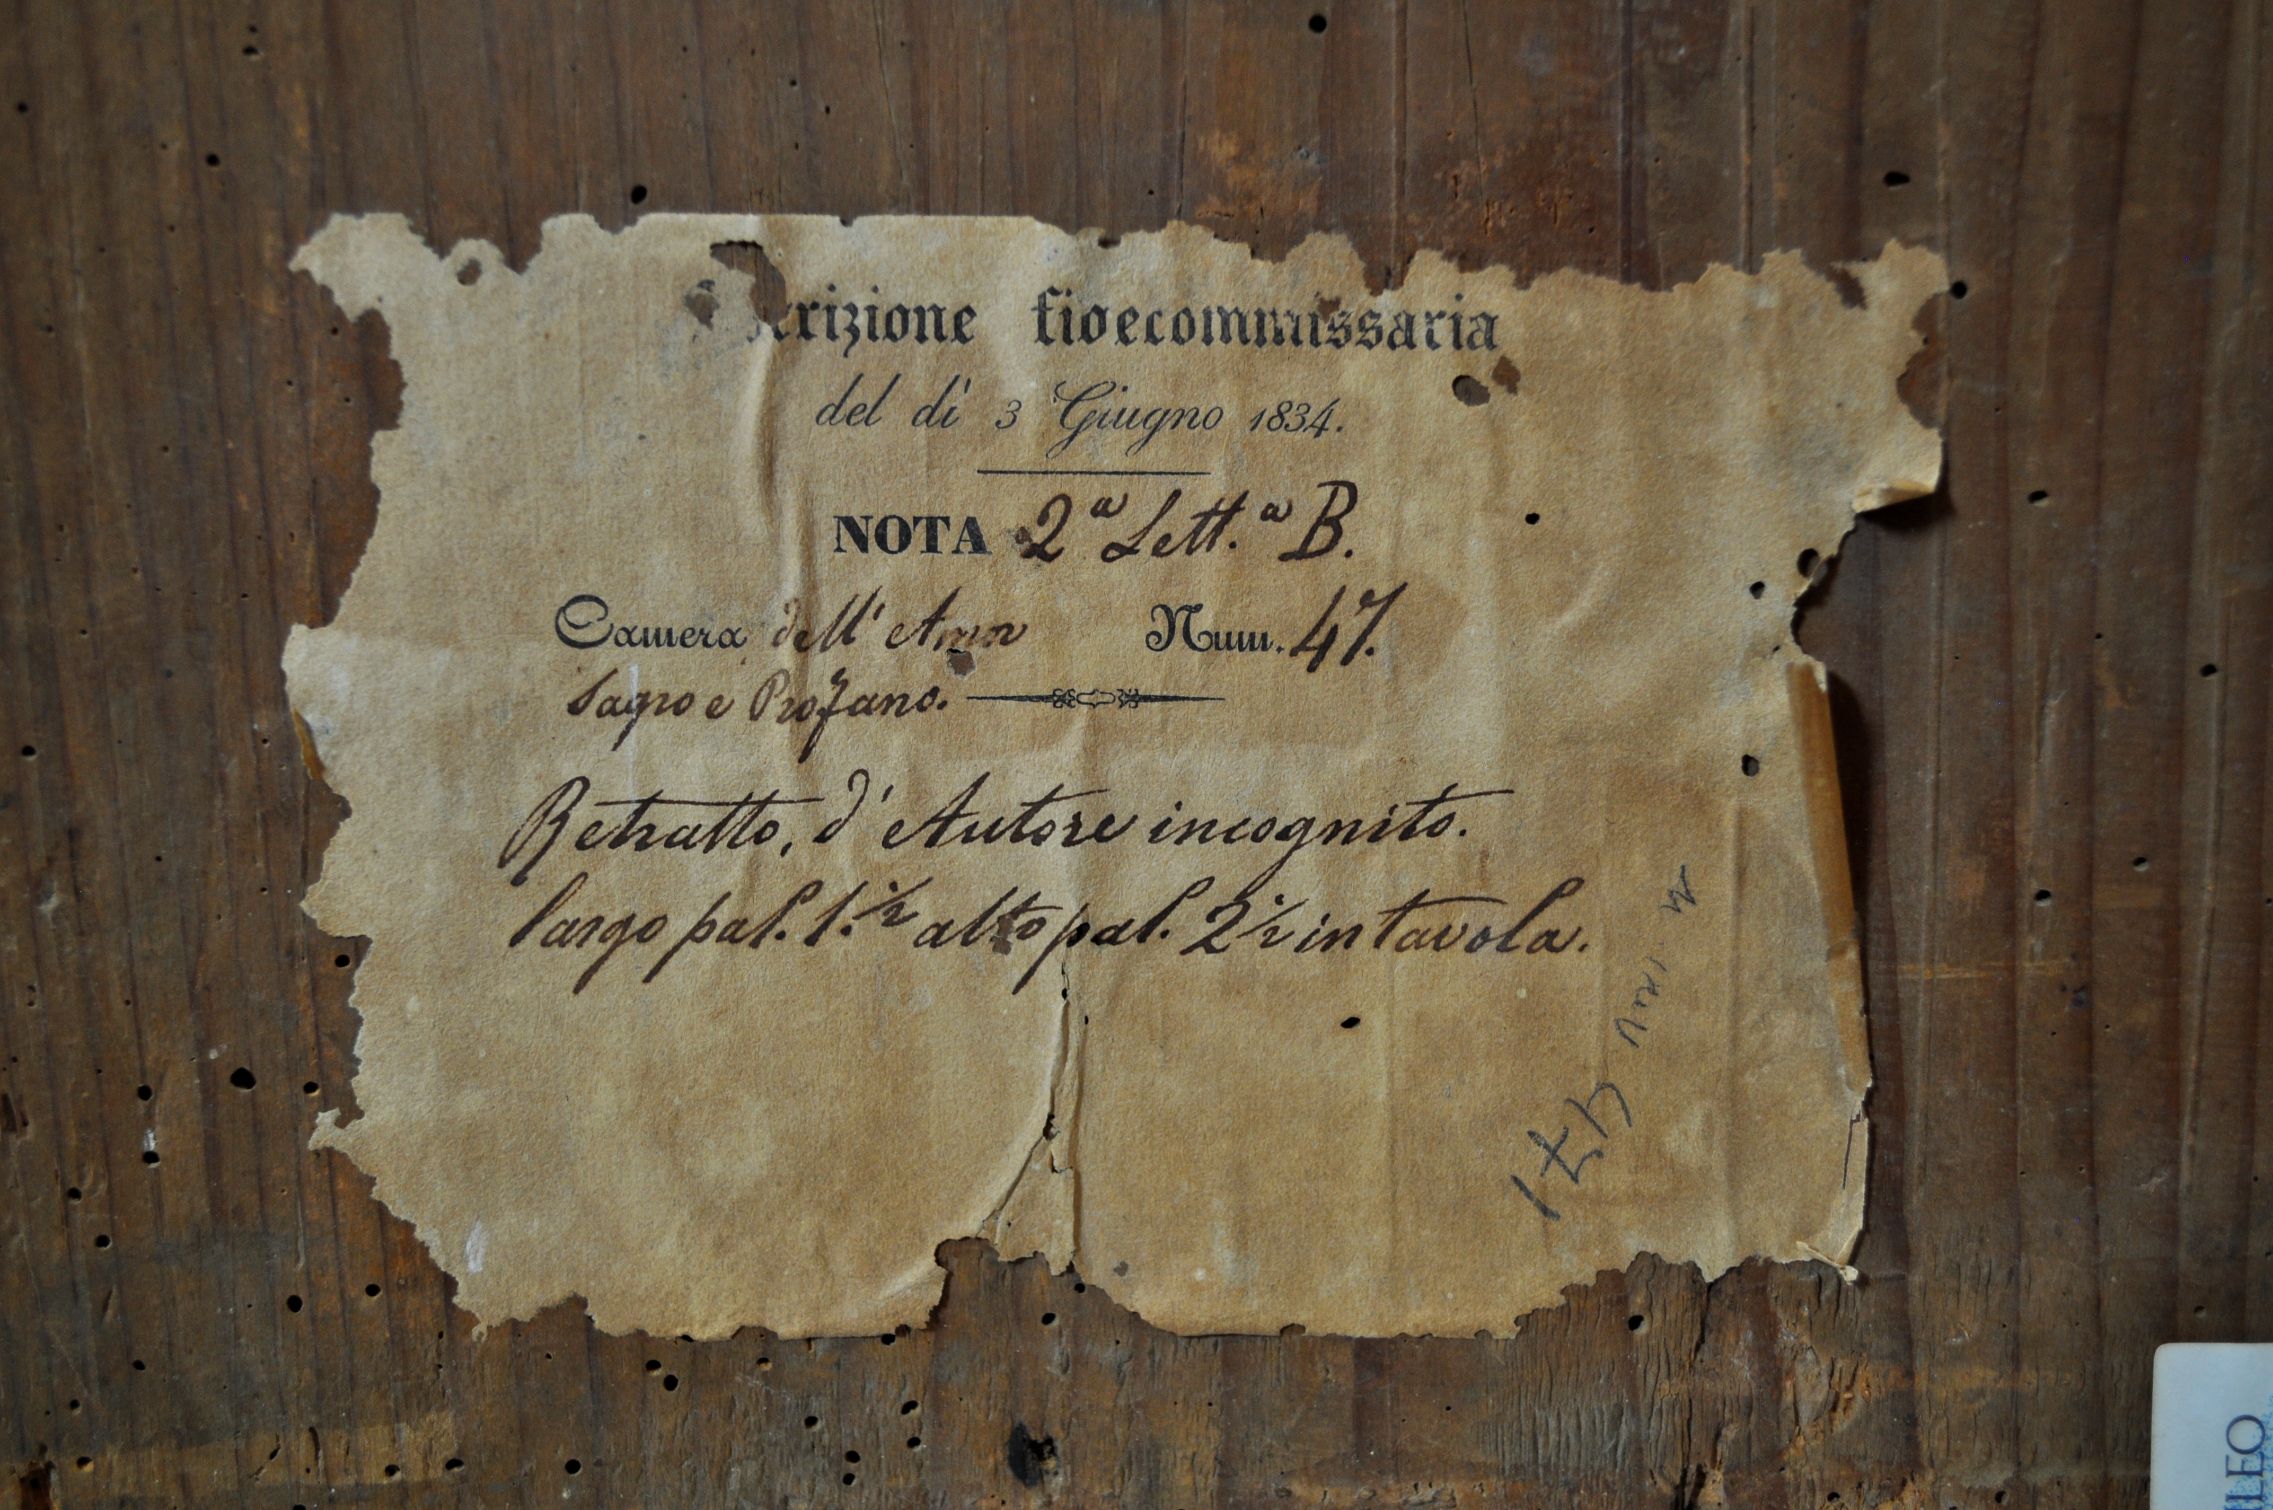 crizione fidecommissaria
del dì 3 Giugno 1834.
NOTA 2ª Lett.ª B.
Camera dell' Amor Num. 47.
Sagro e Profano.
Retratto, d'Autore incognito.
largo pal. 1.½ alto pal. 2½ in tavola.
471
LEO